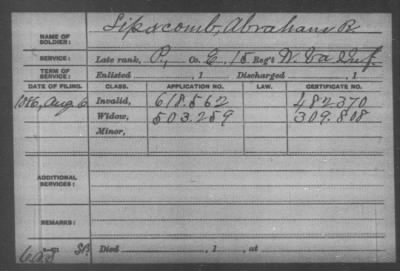 NAME OF SOLDIER: Lipscomb, Abraham R.
SERVICE: Late rank, P, Co. E, 15 Reg't W. Va Inf
TERM OF SERVICE: Enlisted , 1 Discharged , 1
DATE OF FILING. CLASS. APPLICATION NO. LAW. CERTIFICATE NO.
1886, Aug. 6 Invalid, 618.562 482370
Widow, 503.259 309.808
Minor,
ADDITIONAL SERVICES:
REMARKS:
Died , 1 , at